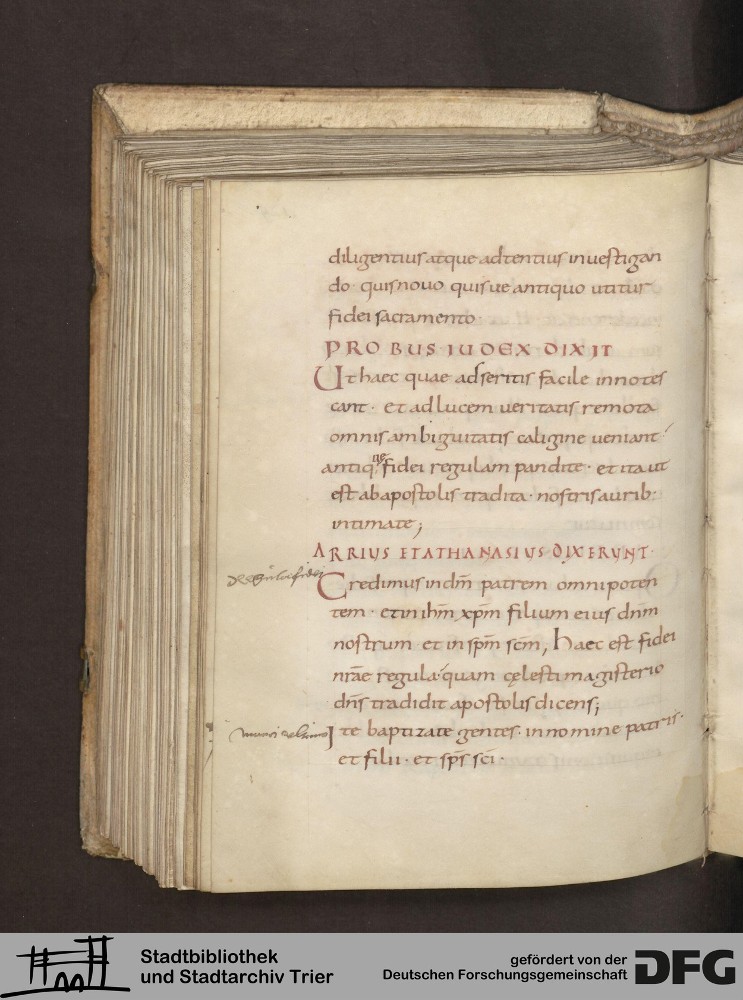 diligentius atque adtentius investigan
do · quis novo quisve antiquo utitur
fidei sacramento ·
PROBUS IUDEX DIXIT
Ut haec quae adseritis facile innotes
cant · et ad lucem veritatis remota
omnis ambiguitatis caligine veniant
antiq; ne fidei regulam pandite · et ita ut
est ab apostolis tradita · nostris aurib:
intimate;
ARRIUS ET ATHANASIUS DIXERUNT ·
de regula fidei
Credimus in dm̄ patrem omnipoten
tem · et in ihm̄ xpm̄ filium eius dnm̄
nostrum et in spm̄ scm̄, haec est fidei
nr̄ae regula quam cęlesti magisterio
dns̄ tradidit apostolis dicens;
Ite baptizate gentes · in nomine patris ·
et filii · et sps̄ scī ·
Stadtbibliothek
und Stadtarchiv Trier
gefördert von der
Deutschen Forschungsgemeinschaft
DFG